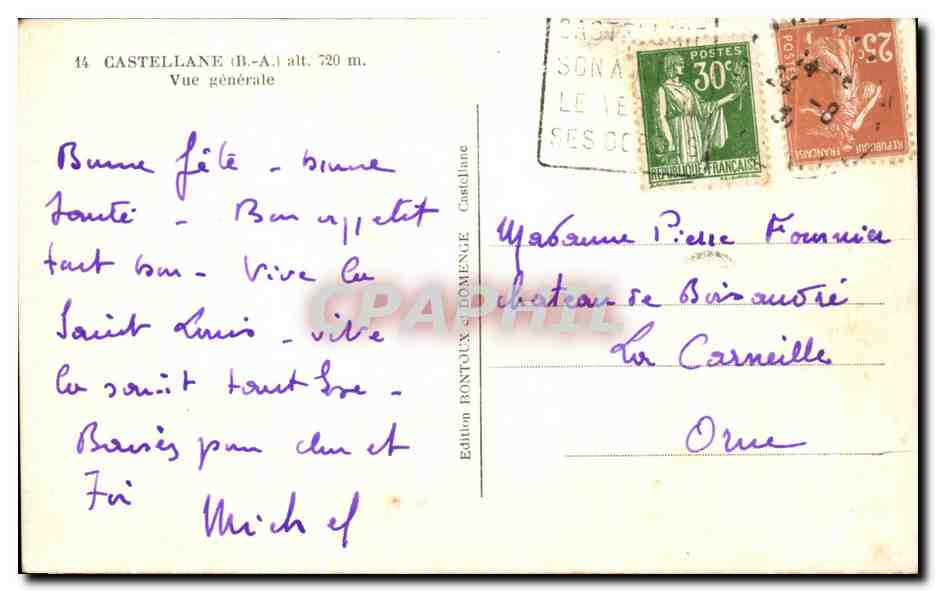 14 CASTELLANE (B.-A.) alt. 720 m.
Vue générale
Bonne fête - bonne
Santé - Bon appetit
tout bon - Vive la
Saint Louis - vive
la
Baisés pour et
Michel
Edition BONTOUX et DOMENGE Castellane
CASTELLANE
SON A
LE VE
SES GO
POSTES
30c
REPUBLIQUE FRANÇAISE
25c
POSTES
REPUBLIQUE
FRANÇAISE
Madame Pierre Fournier
chateau de Boisandré
La Carneille
Orne
CPAPHIL